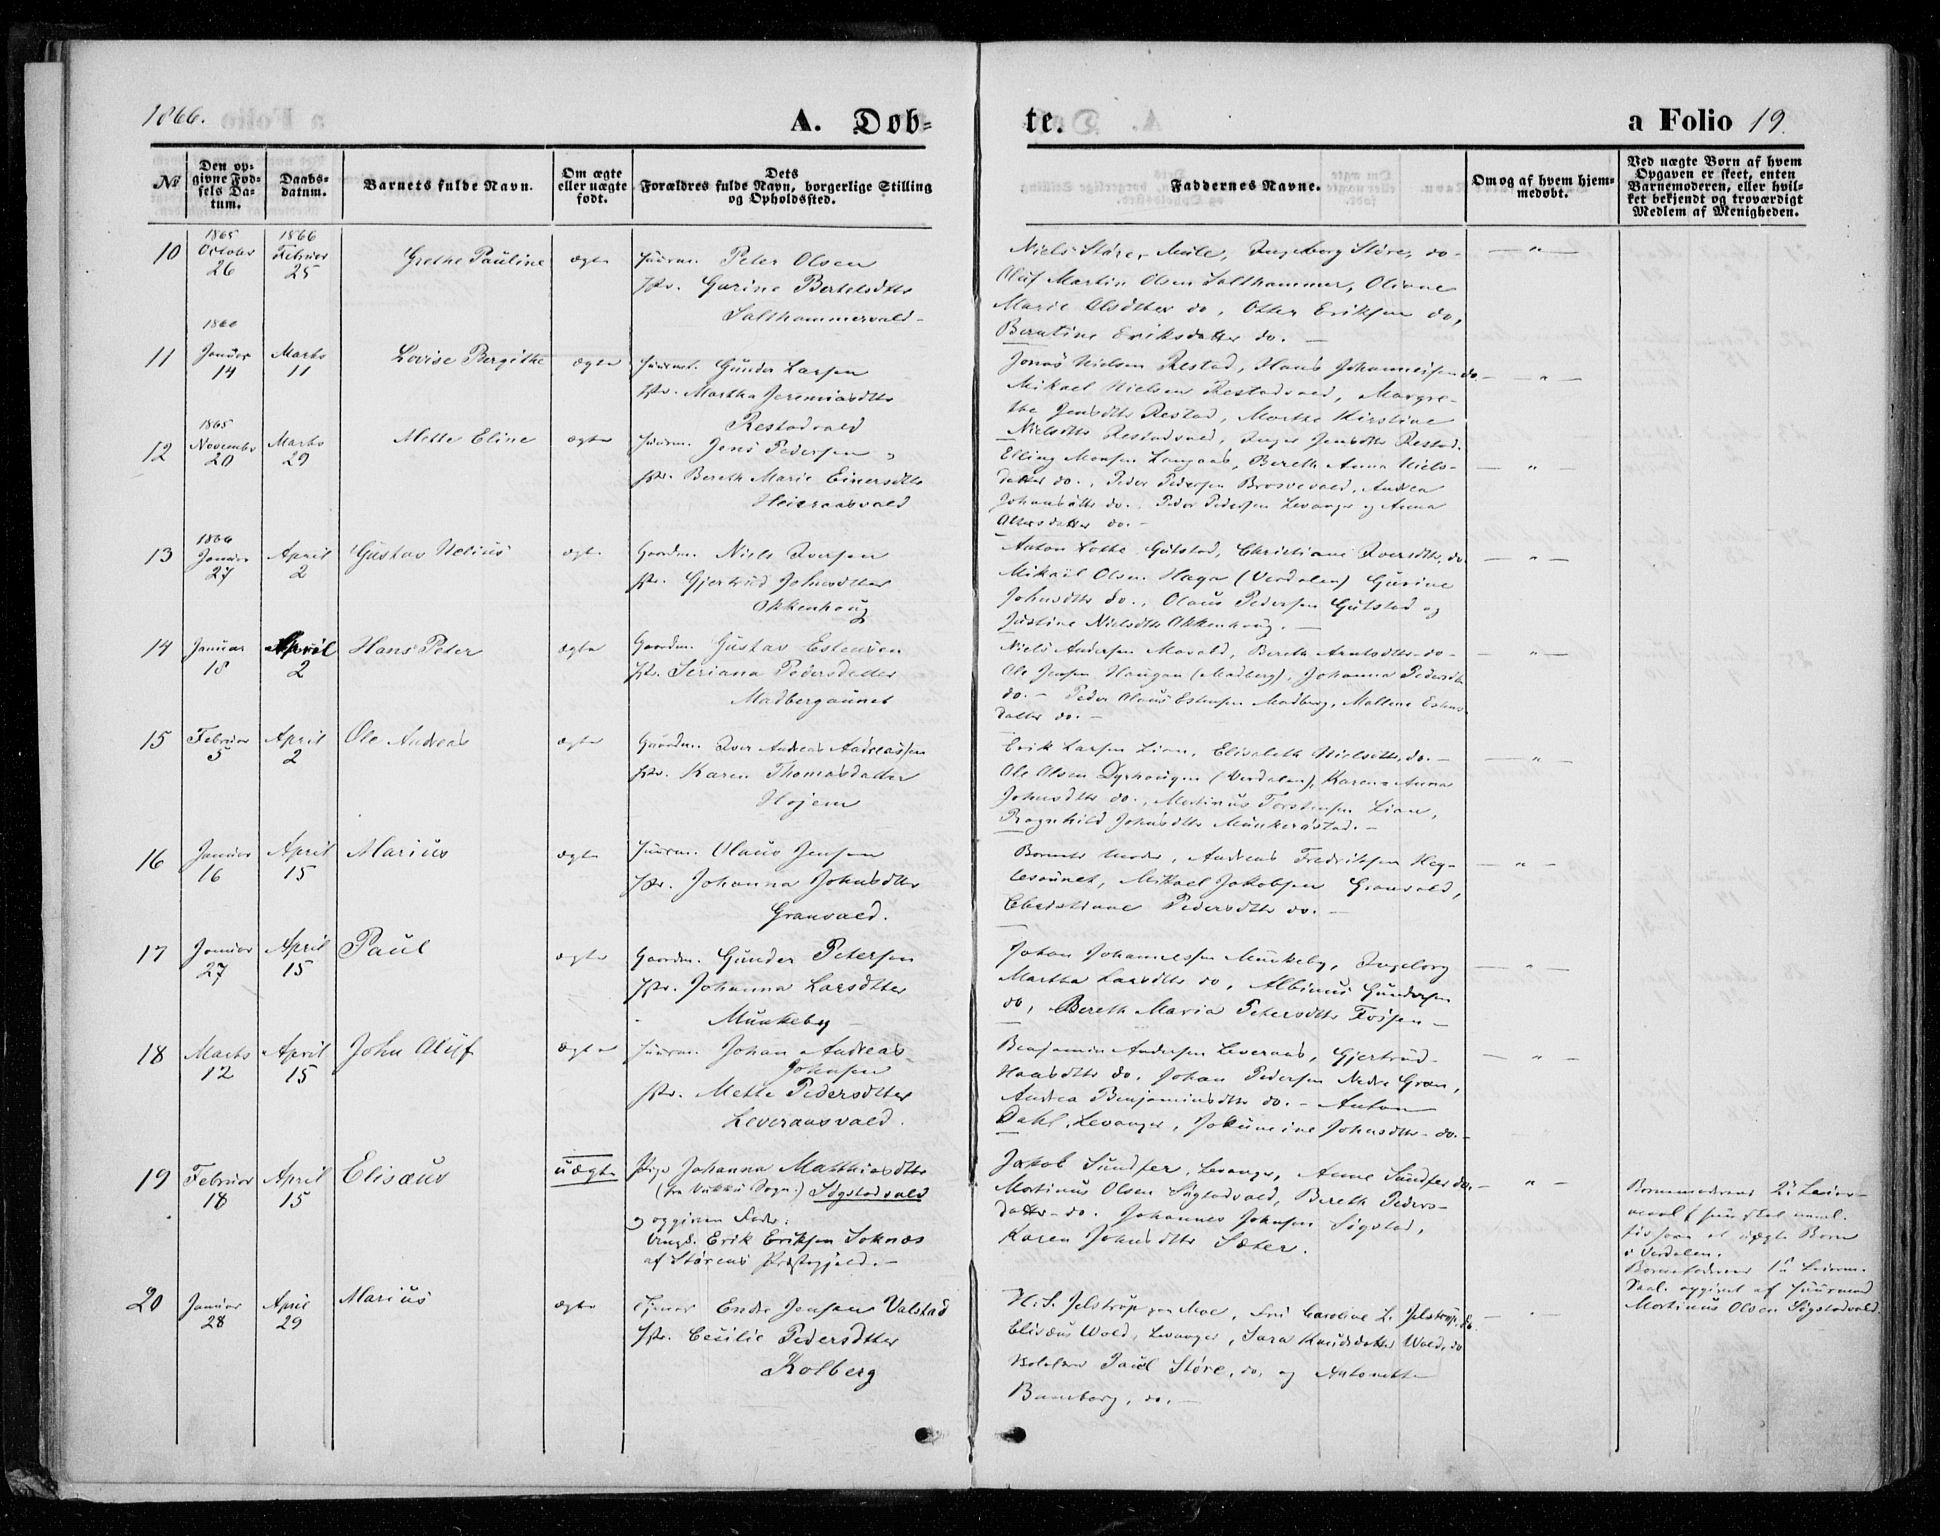 1866.
A. Døb-
te.
a Folio 19.
No
Den op-
givne Fød-
sels Da-
tum.
Daabs-
datum.
Barnets fulde Navn.
Om ægte
eller uægte
født.
Dets
Forældres fulde Navn, borgerlige Stilling
og Opholdssted.
Faddernes Navne.
Om og af hvem hjem-
medøbt.
Ved uægte Børn af hvem
Opgaven er skeet, enten
Barnemoderen, eller hvil-
ket bekjendt og troværdigt
Medlem af Menigheden.
10
1865
October
26
1866
Februar
25
Grethe Pauline
ægte
Huusm. Peter Olsen
Hst. Gurine Bertelsdtr
Salthammervald
Niels Støre, Mule, Ingeborg Støre, do
Oluf Martin Olsen Salthammer, Oliane
Marie Olsdtter do, Otter Eriksen do,
Berntine Eriksdatter do.
11
1866
Januar
14
Marts
11
Lovise Bergithe
ægte
Huusm. Gunder Larsen
Hst. Martha Jeremiasdtr
Restadvald
Jonas Nielsen Restad, Hans Johannessen do
Mikael Nielsen Restadvald, Margre-
the Jensdtr Restad, Marthe Kirstine
Nielsdtr Restadvald, Inger Jensdtr Restad.
12
1865
November
20
Marts
29
Mette Eline
ægte
Huusm. Jens Pedersen
Hst. Bereth Marie Einersdtr
Heieraasvald
Elling Monsen Langaas, Bereth Anna Niels-
datter do., Peder Pedersen Brosvevald, Andrea
Johansdtr do. Peder Pedersen Levanger og Anna
Ottersdatter do.
13
1866
Januar
27
April
2
Gustav Nelius
ægte
Gaardm. Niels Iversen
Hst. Gjertrud Johnsdtter
Okkenhoug
Anton Lothe Gulstad, Christiane Iversdtr, do.
Mikael Olsen Haga (Verdalen) Gurine
Johnsdtr do., Olaus Pedersen Gulstad og
Justine Nielsdtr Okkenhoug.
14
Januar
18
April
2
Hans Peter
ægte
Gaardm. Gustav Estensen
Hst. Seriana Pedersdatter
Madbergaunet
Niels Andersen Movald, Bereth Arntsdtr do
Ole Jensen Haugan (Madberg), Johanna Pedersdtr
do. Peder Olaus Estensen Madberg, Maltene Estens-
datter do.
15
Februar
5
April
2
Ole Andreas
ægte
Gaardm. Iver Andreas Andreassen
Hst. Karen Thomasdatter
Højem
Erik Larsen Lian, Elisabeth Nielsdtr, do.
Ole Olsen Dyrhaugen (Verdalen), Karen Anna
Johnsdtr do., Martinus Torstensen Lian,
Ragnhild Johnsdtr Munkerøstad.
16
Januar
16
April
15
Marius
ægte
Huusm. Olaus Jensen
Hst. Johanna Johnsdtr
Granvald.
Barnets Moder, Andreas Fredriksen Heg-
lesaunet, Mikael Jakobsen Granvald,
Christiane Pedersdtr do.
17
Januar
27
April
15
Paul
ægte
Gaardm. Gunder Petersen
Hst. Johanna Larsdtter
Munkeby
Johan Johannessen Munkeby, Ingeborg
Martha Larsdtr do, Albinus Gundersen
do, Bereth Maria Petersdtr Frøsen
18
Marts
12
April
15
John Oluf
ægte
Huusm. Johan Andreas
Johnsen
Hst. Mette Pedersdtter
Leveraasvald.
Benjamin Andersen Leveraas, Gjertrud
Haasdtr do. Johan Pedersen Nedre Gran,
Andrea Benjaminsdtr do. Anton
Dahl, Levanger, Jokumine Johnsdtr do.
19
Februar
18
April
15
Elisæus
uægte
Pige Johanna Matthiasdtr
(fra Vukku Sogn) Søgstadvald
og opgiven Fader:
Ungk. Erik Eriksen Soknæs
af Størens Præstegjeld.
Jakob Sundfær, Levanger, Anne Sundfær do.
Martinus Olsen Søgstadvald, Bereth Peders-
datter do. Johannes Johnsen Søgstad,
Karen Johnsdtr Sæter.
Barnemoderens 2det Leier-
maal (hun skal
et uægte Barn
i Verdalen.
Barnefaderens 1ste Leierm.
opgivet af Huusmand
Martinus Olsen Søgstadvald.
20
Januar
28
April
29
Marius
ægte
Tjener Endre Jensen Valstad
Hst. Cecilie Pedersdtter
Kolberg
H. S. Jelstrup paa Moe, Fru Caroline L. Jelstrup, do.
Elisæus Wold, Levanger, Sara Knudsdatter Wold, do
Paul Støre, do, og Antonette
Banberg, do.